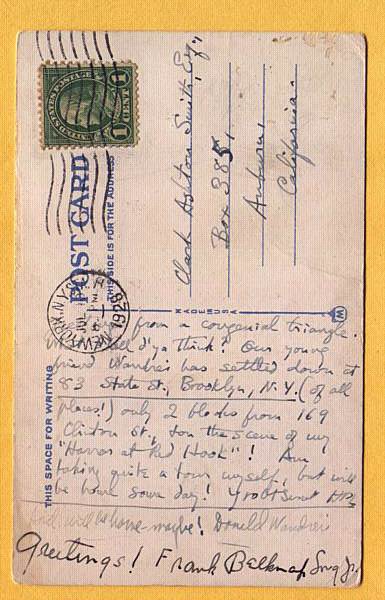 UNITED STATES POSTAGE
1 CENT 1
POST CARD
THIS SIDE IS FOR THE ADDRESS
NEW YORK, N.Y.
JUL
1928
Clark Ashton Smith, Esq.,
Box 385,
Auburn,
California.
MADE IN USA
W
THIS SPACE FOR WRITING
from a congenial triangle.
d'ya think! Our young
friend Wandrei has settled down at
83 State St., Brooklyn, N.Y. (of all
places!) only 2 blocks from 169
Clinton St., & on the scene of my
"Horror at Red Hook"! Am
taking quite a tour myself, but will
be home some day! Yr obt Servt HPL
will be home—maybe! Donald Wandrei
Greetings! Frank Belknap Long Jr.